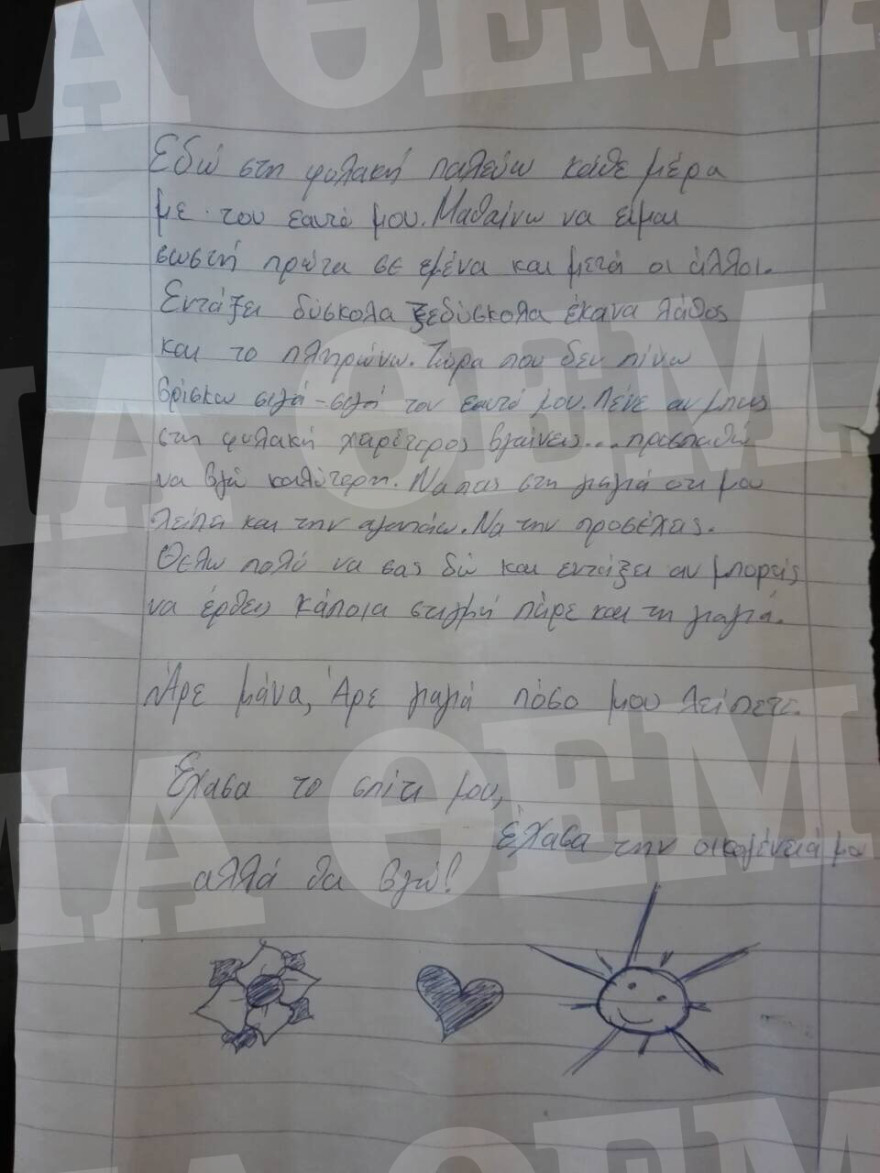 Εδώ στη φυλακή παλεύω κάθε μέρα
με τον εαυτό μου. Μαθαίνω να είμαι
σωστή πρώτα σε εμένα και μετά οι άλλοι.
Εντάξει δύσκολα ξεδύσκολα έκανα λάθος
και το πληρώνω. Τώρα που δεν πίνω
βρίσκω σιγά-σιγά τον εαυτό μου. Λένε αν μπεις
στη φυλακή χειρότερος βγαίνεις... προσπαθώ
να βγω καλύτερη. Να πεις στη γιαγιά οτι μου
λείπει και την αγαπάω. Να την προσέχεις.
Θέλω πολύ να σας δω και εντάξει αν μπορείς
να έρθεις κάποια στιγμή πάρε και τη γιαγιά.
Άρε μάνα, Άρε γιαγιά πόσο μου λείπετε.
Έχασα το σπίτι μου,
έχασα την οικογένειά μου
αλλά θα βγω!
ΘΕΜΑ
ΘΕΜΑ
ΘΕΜΑ
ΘΕΜΑ